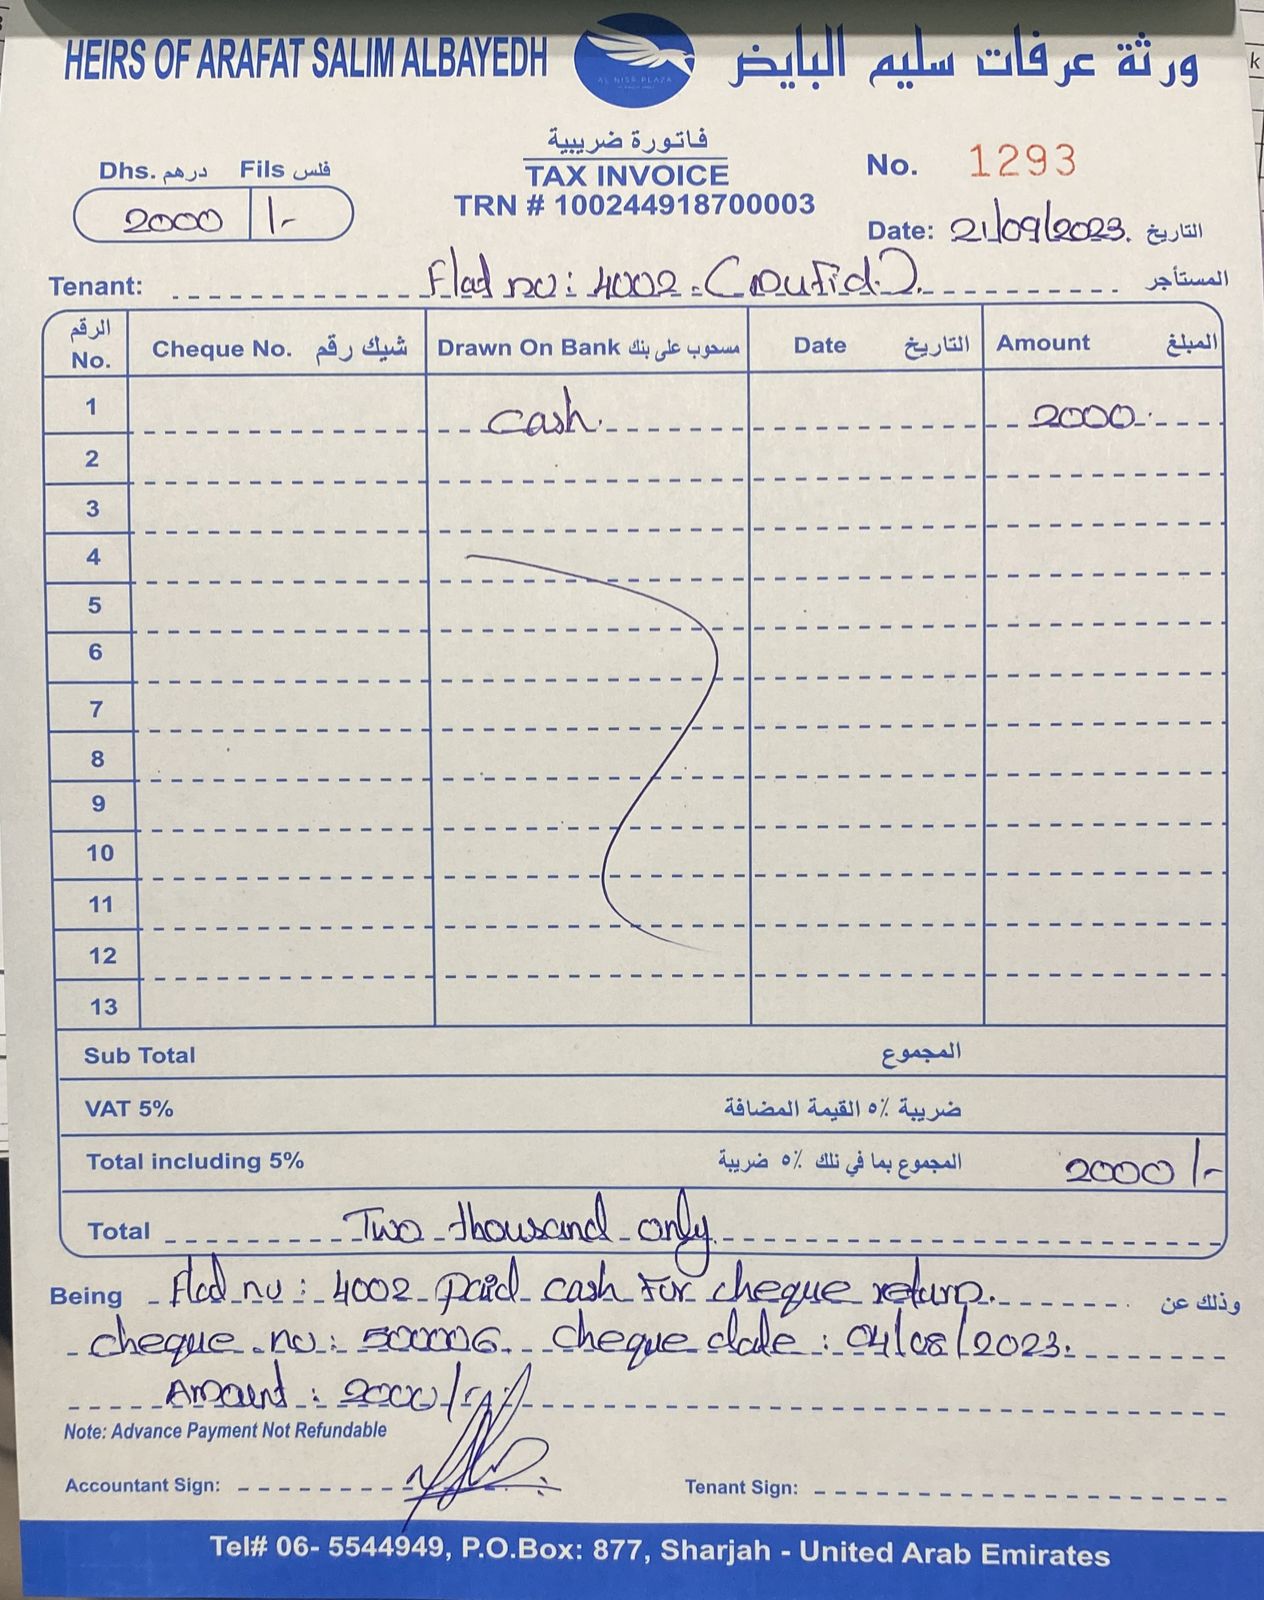 HEIRS OF ARAFAT SALIM ALBAYEDH
ورثة عرفات سليم البايض
AL NISR PLAZA
فاتورة ضريبية
TAX INVOICE
TRN # 100244918700003
Dhs. درهم Fils فلس
2000 /-
No. 1293
Date: 21/09/2023. التاريخ
Tenant: Flat no: 4002 المستأجر
الرقم No. Cheque No. شيك رقم Drawn On Bank مسحوب على بنك Date التاريخ Amount المبلغ
1 cash. 2000.
2
3
4
5
6
7
8
9
10
11
12
13
Sub Total المجموع
VAT 5% ضريبة ٥٪ القيمة المضافة
Total including 5% المجموع بما في ذلك ٥٪ ضريبة 2000/-
Total Two thousand only
Being Flat no: 4002 paid cash for cheque return. وذلك عن
cheque no: 500006 cheque date: 04/08/2023.
Amount: 2000/-
Note: Advance Payment Not Refundable
Accountant Sign:
Tenant Sign:
Tel# 06- 5544949, P.O.Box: 877, Sharjah - United Arab Emirates